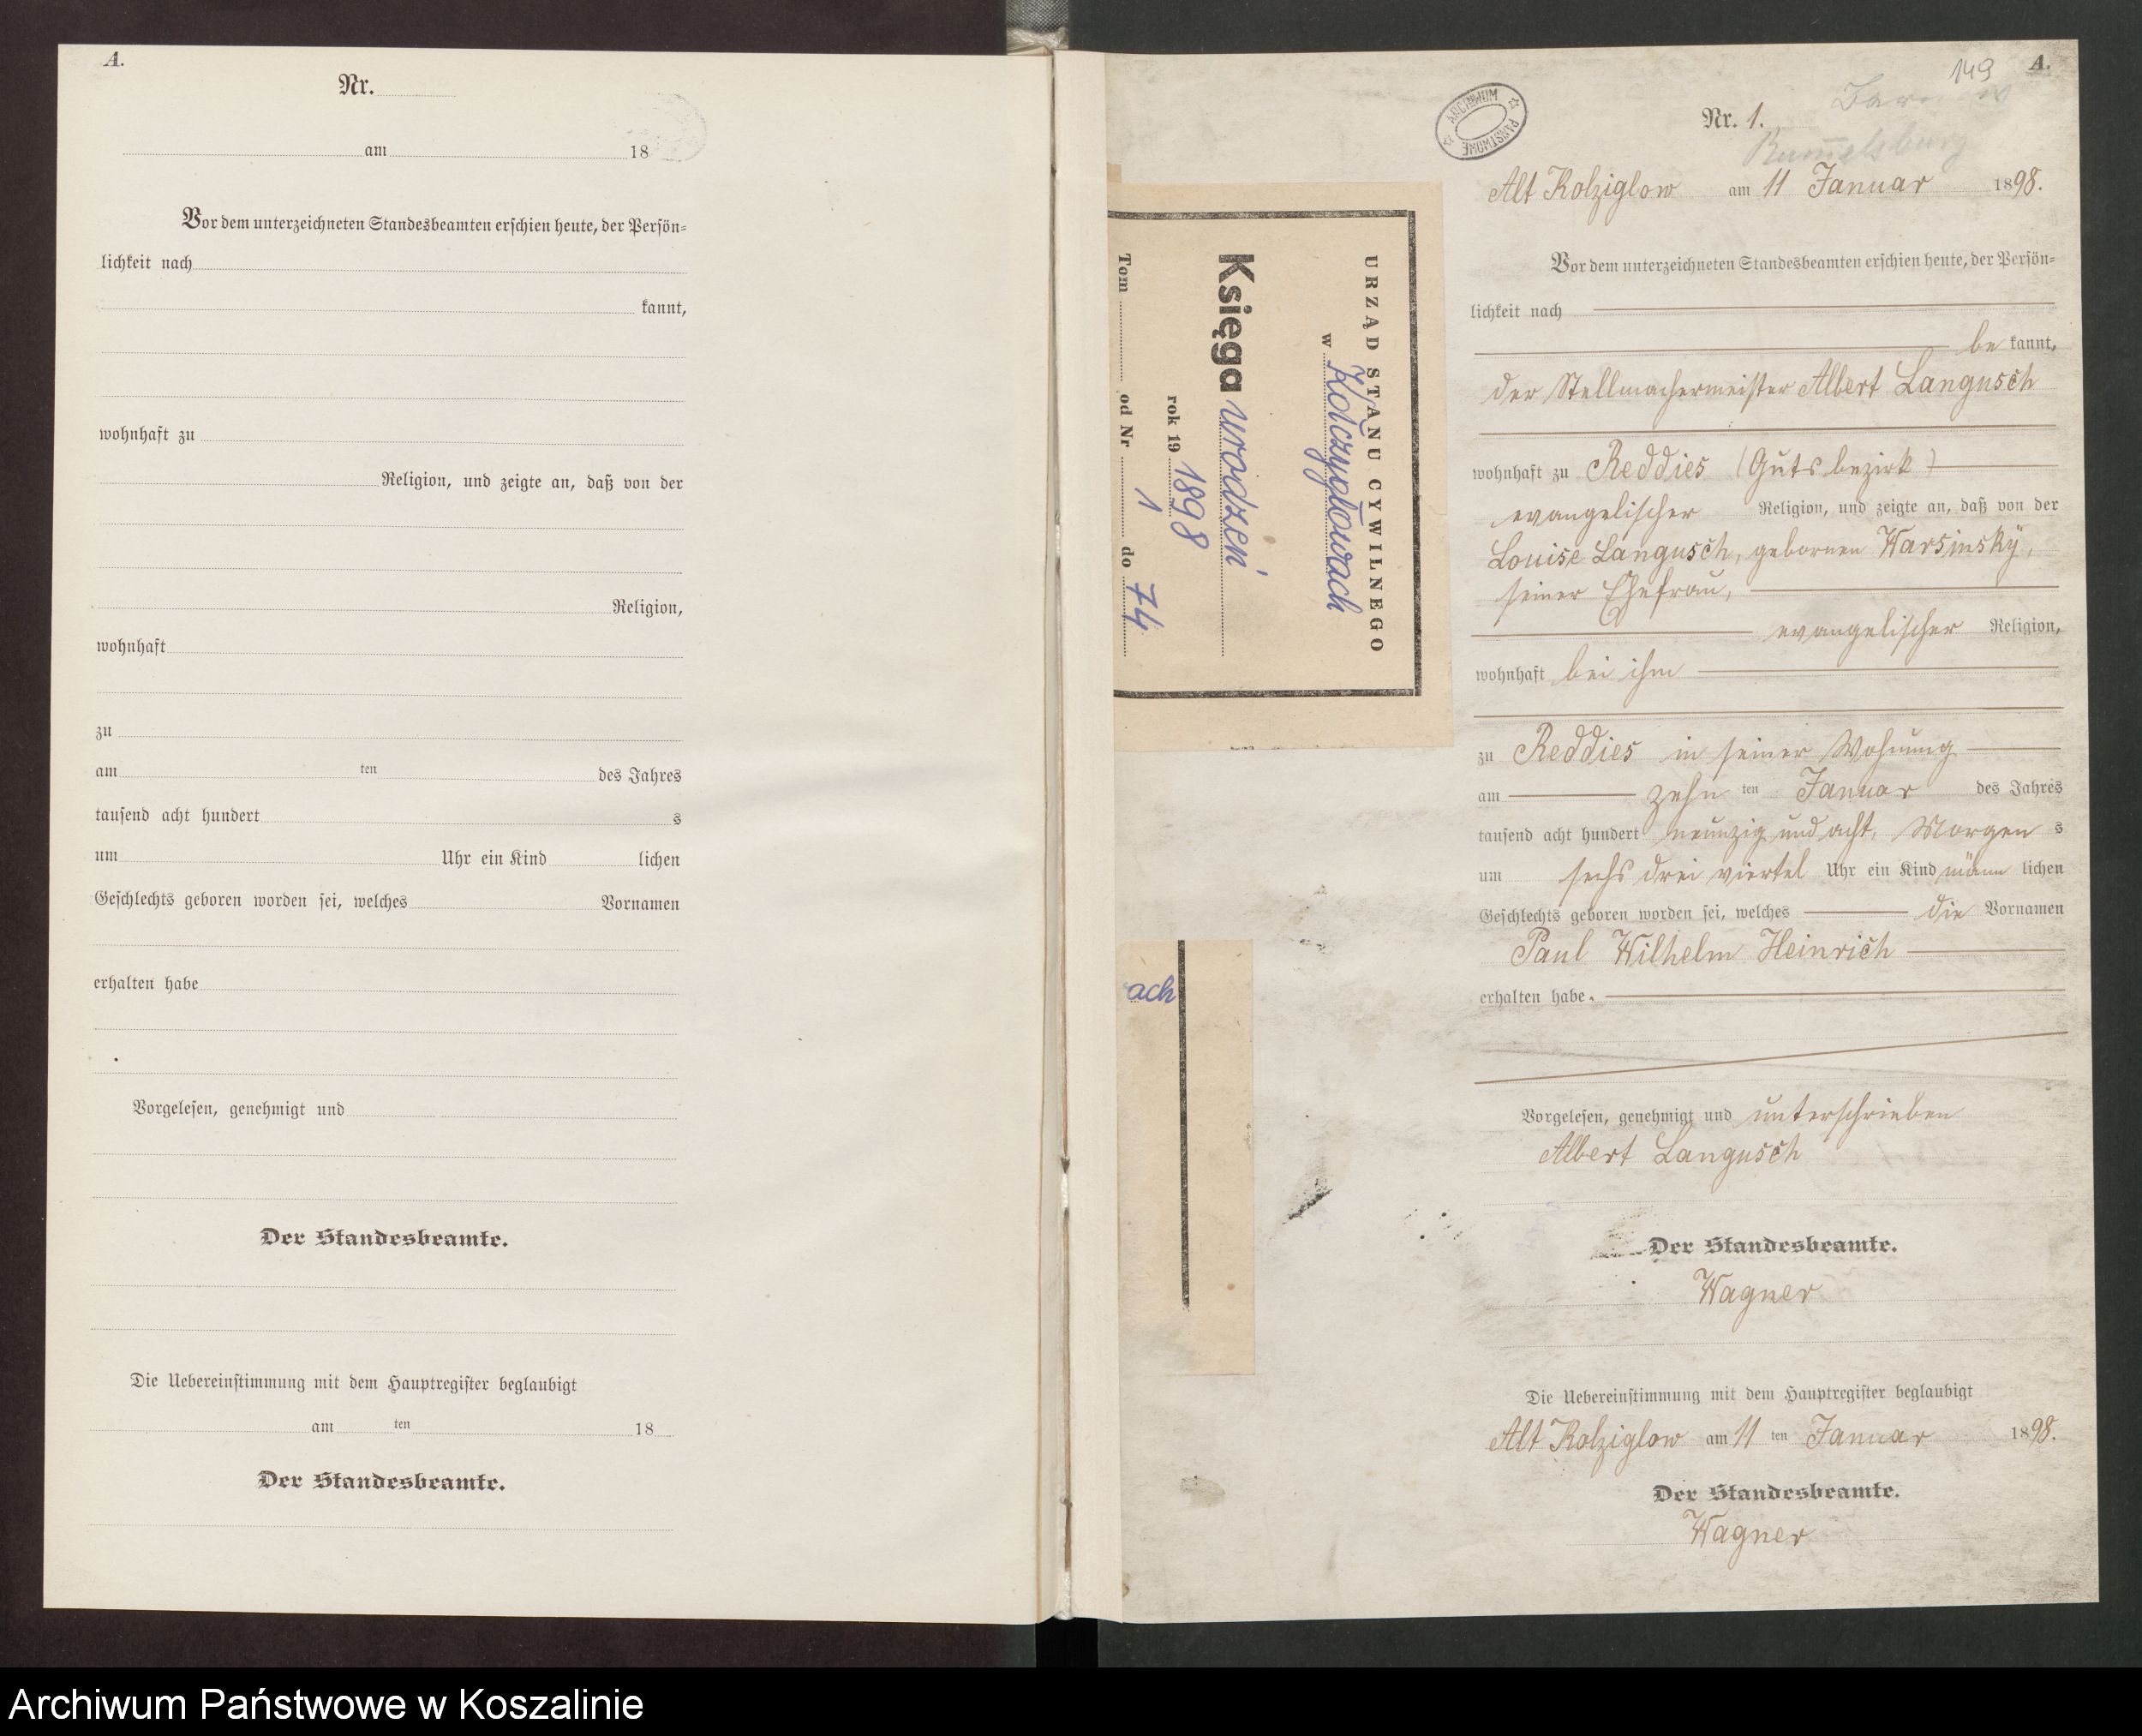 A.
Nr.
am 18
Vor dem unterzeichneten Standesbeamten erschien heute, der Persön-
lichkeit nach
kannt,
wohnhaft zu
Religion, und zeigte an, daß von der
Religion,
wohnhaft
zu
am ten des Jahres
tausend acht hundert s
um Uhr ein Kind lichen
Geschlechts geboren worden sei, welches Vornamen
erhalten habe
Vorgelesen, genehmigt und
Der Standesbeamte.
Die Uebereinstimmung mit dem Hauptregister beglaubigt
am ten 18
Der Standesbeamte.
URZĄD STANU CYWILNEGO
w Kołczygłowach
Księga urodzeń
rok 19 1898
Tom od Nr 1 do 74
ach
ARCHIWUM PAŃSTWOWE
149 A.
Nr. 1.
Rummelsburg
Alt Kolziglow am 11 Januar 1898.
Vor dem unterzeichneten Standesbeamten erschien heute, der Persön-
lichkeit nach
be kannt,
der Stellmachermeister Albert Langusch
wohnhaft zu Reddies (Gutsbezirk)
evangelischer Religion, und zeigte an, daß von der
Louise Langusch, gebornen Warsinsky,
seiner Ehefrau,
evangelischer Religion,
wohnhaft bei ihm
zu Reddies in seiner Wohnung
am zehn ten Januar des Jahres
tausend acht hundert neunzig und acht, Morgen s
um sechs drei viertel Uhr ein Kind männ lichen
Geschlechts geboren worden sei, welches die Vornamen
Paul Wilhelm Heinrich
erhalten habe.
Vorgelesen, genehmigt und unterschrieben
Albert Langusch
Der Standesbeamte.
Wagner
Die Uebereinstimmung mit dem Hauptregister beglaubigt
Alt Kolziglow am 11 ten Januar 1898.
Der Standesbeamte.
Wagner
Archiwum Państwowe w Koszalinie